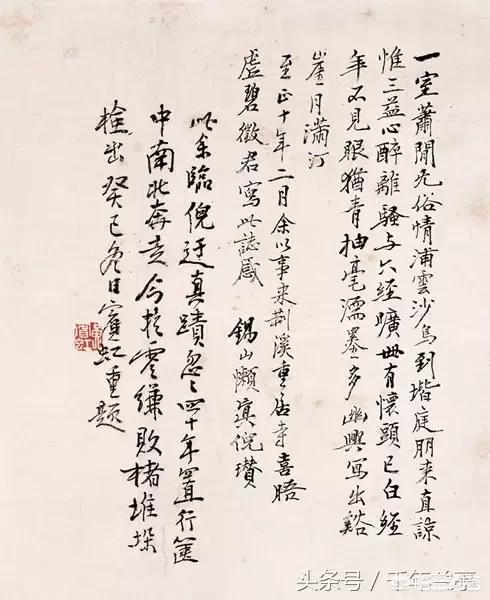 一室蕭閒无俗情浦雲沙鳥到堦庭朋來直諒
惟三益心醉離騷与六經曠世有懷頭已白經
年不見眼猶青抽毫濡墨多幽興寫出谿
崖月滿汀
至正十年二月余以事来荆溪重居寺喜晤
虛碧徵君寫此誌感 錫山懶真倪瓚
此余臨倪迂真蹟忽〻四十年置行篋
中南北奔走今於零縑敗楮堆垜
檢出癸巳冬日賓虹重題
头条号／千年兰亭